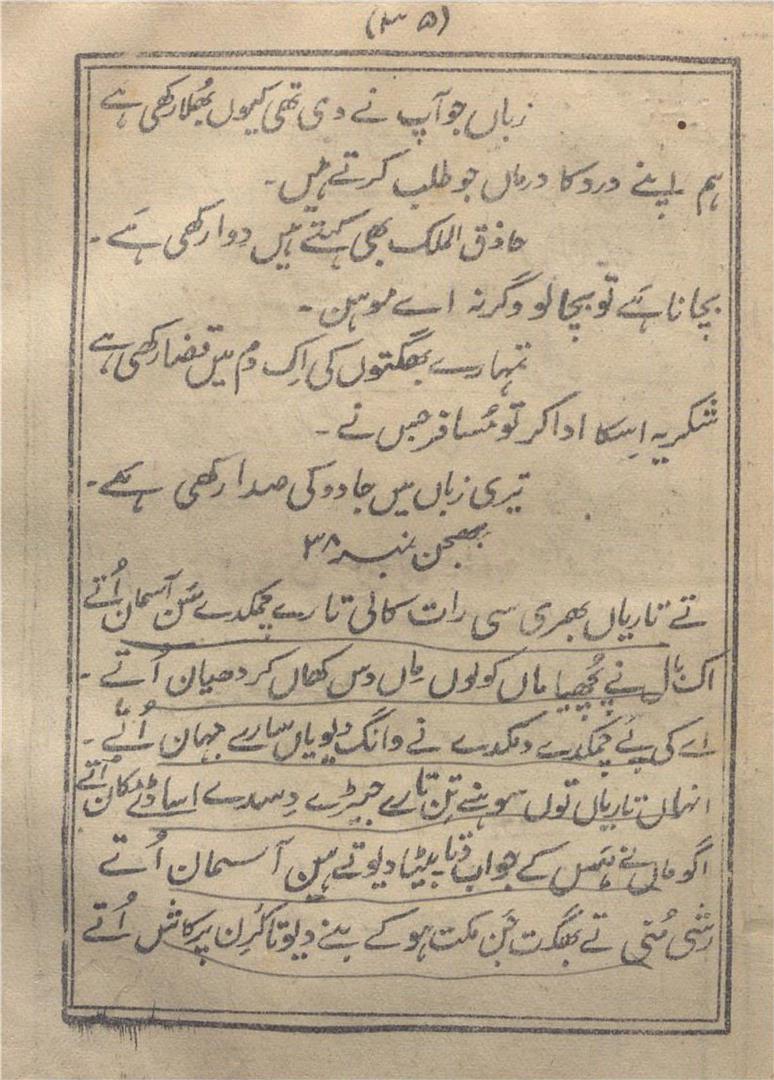 (۳۵)
زباں جو آپ نے دی تھی کیوں بھلا رکھی ہے
ہم اپنے درد کا درماں جو طلب کرتے ہیں۔
حاذق الملک بھی کہتے ہیں دوا رکھی ہے۔
بچانا ہے تو بچا لو وگرنہ اے موہن۔
تمہارے بھگتوں کی اِک دم میں قضا رکھی ہے
شکریہ اِسکا ادا کر تو مُسافر جس نے۔
تیری زباں میں جادو کی صدا رکھی ہے۔
بھجن نمبر ۳۸
تے تاریاں بھری سی رات کالی تارے چمکدے سَن آسمان اُتے
اک بال نے پُچھیا ماں کولوں ماں دس کھاں کر دھیان اُتے۔
اے کی پئے چمکدے دمکدے نے وانگ دیویاں سارے جہان اُتے۔
انہاں تاریاں توں سوہنے تِن تارے جیہڑے دِسدے اساڈے مکان اُتے
اگوں ماں نے ہَس کے جواب دِتا بیٹا دیوتے ہین آسمان اُتے
رِشی مُنی تے بھگت جَن مکت ہو کے بنے دیوتا کُرن پرکاش اُتے